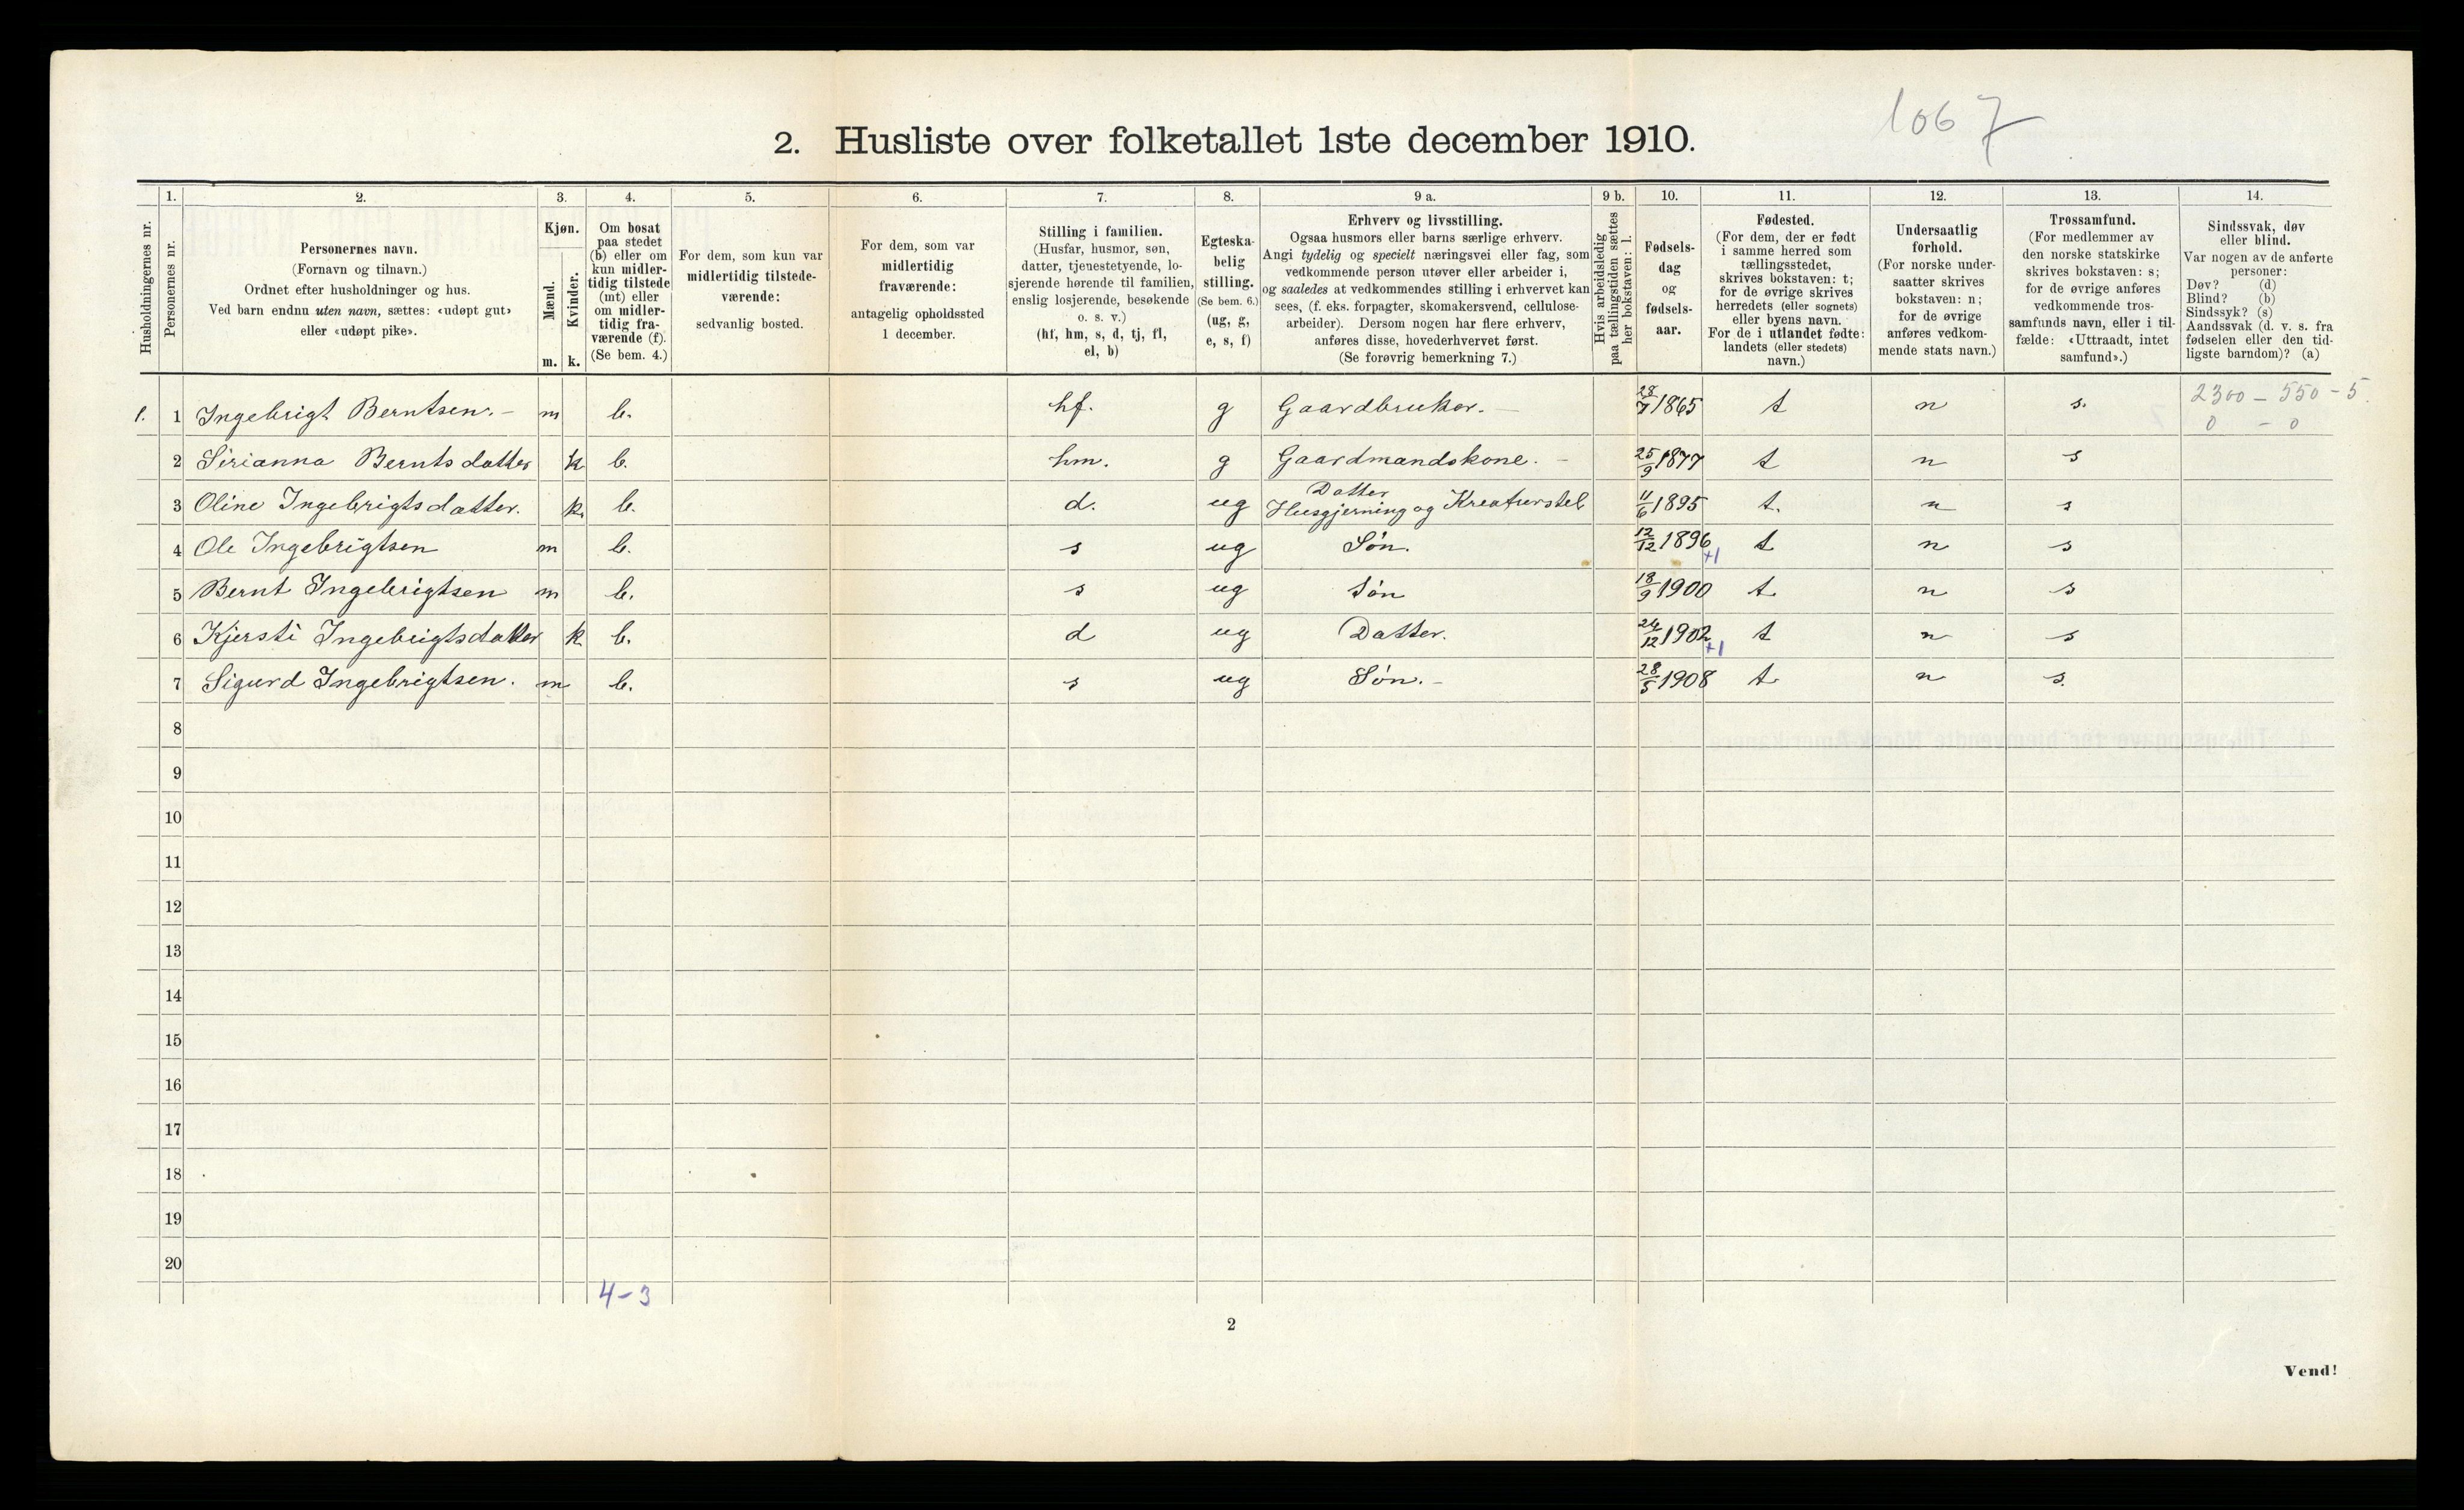 1067
2. Husliste over folketallet 1ste december 1910.
1. 2. 3. 4. 5. 6. 7. 8. 9 a. 9 b. 10. 11. 12. 13. 14.
Husholdningernes nr.
Personernes nr.
Personernes navn.
(Fornavn og tilnavn.)
Ordnet efter husholdninger og hus.
Ved barn endnu uten navn, sættes: «udøpt gut»
eller «udøpt pike».
Kjøn.
Mænd.
Kvinder.
m. k.
Om bosat
paa stedet
(b) eller om
kun midler-
tidig tilstede
(mt) eller
om midler-
tidig fra-
værende (f).
(Se bem. 4.)
For dem, som kun var
midlertidig tilstede-
værende:
sedvanlig bosted.
For dem, som var
midlertidig
fraværende:
antagelig opholdssted
1 december.
Stilling i familien.
(Husfar, husmor, søn,
datter, tjenestetyende, lo-
sjerende hørende til familien,
enslig losjerende, besøkende
o. s. v.)
(hf, hm, s, d, tj, fl,
el, b)
Egteska-
belig
stilling.
(Se bem. 6.)
(ug, g,
e, s, f)
Erhverv og livsstilling.
Ogsaa husmors eller barns særlige erhverv.
Angi tydelig og specielt næringsvei eller fag, som
vedkommende person utøver eller arbeider i,
og saaledes at vedkommendes stilling i erhvervet kan
sees, (f. eks. forpagter, skomakersvend, cellulose-
arbeider). Dersom nogen har flere erhverv,
anføres disse, hovederhvervet først.
(Se forøvrig bemerkning 7.)
Hvis arbeidsledig
paa tællingstiden sættes
her bokstaven: l.
Fødsels-
dag
og
fødsels-
aar.
Fødested.
(For dem, der er født
i samme herred som
tællingsstedet,
skrives bokstaven: t;
for de øvrige skrives
herredets (eller sognets)
eller byens navn.
For de i utlandet fødte:
landets (eller stedets)
navn.)
Undersaatlig
forhold.
(For norske under-
saatter skrives
bokstaven: n;
for de øvrige
anføres vedkom-
mende stats navn.)
Trossamfund.
(For medlemmer av
den norske statskirke
skrives bokstaven: s;
for de øvrige anføres
vedkommende tros-
samfunds navn, eller i til-
fælde: «Uttraadt, intet
samfund».)
Sindssvak, døv
eller blind.
Var nogen av de anførte
personer:
Døv? (d)
Blind? (b)
Sindssyk? (s)
Aandssvak (d. v. s. fra
fødselen eller den tid-
ligste barndom)? (a)
1. 1 Ingebrigt Berntsen.- m b. hf. g Gaardbruker. 28/7 1865 t n s. 2300 - 550 - 5.
0 - 0
2 Sirianna Berntsdatter k b. hm. g Gaardmandskone. 25/9 1877 t n s
Datter
3 Oline Ingebrigtsdatter. k. b. d. ug Husgjerning og Kreaturstel 11/6 1895 t. n s
4 Ole Ingebrigtsen m b. s ug Søn. 12/12 1896 +1 t n s
5 Bernt Ingebrigtsen m b. s ug Søn 18/9 1900 t. n s
6 Kjersti Ingebrigtsdatter k b. d ug Datter. 24/12 1902 +1 t n s
7 Sigurd Ingebrigtsen. m b. s ug Søn.- 28/5 1908 t. n s.
8
9
10
11
12
13
14
15
16
17
18
19
20
4-3
2
Vend!